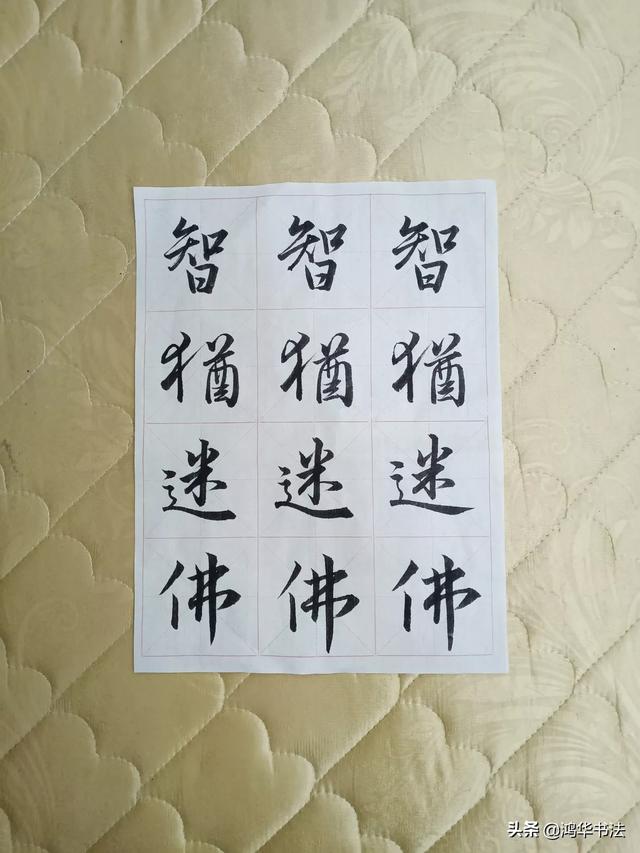 智 智 智
猶 猶 猶
迷 迷 迷
佛 佛 佛
头条 @鸿华书法